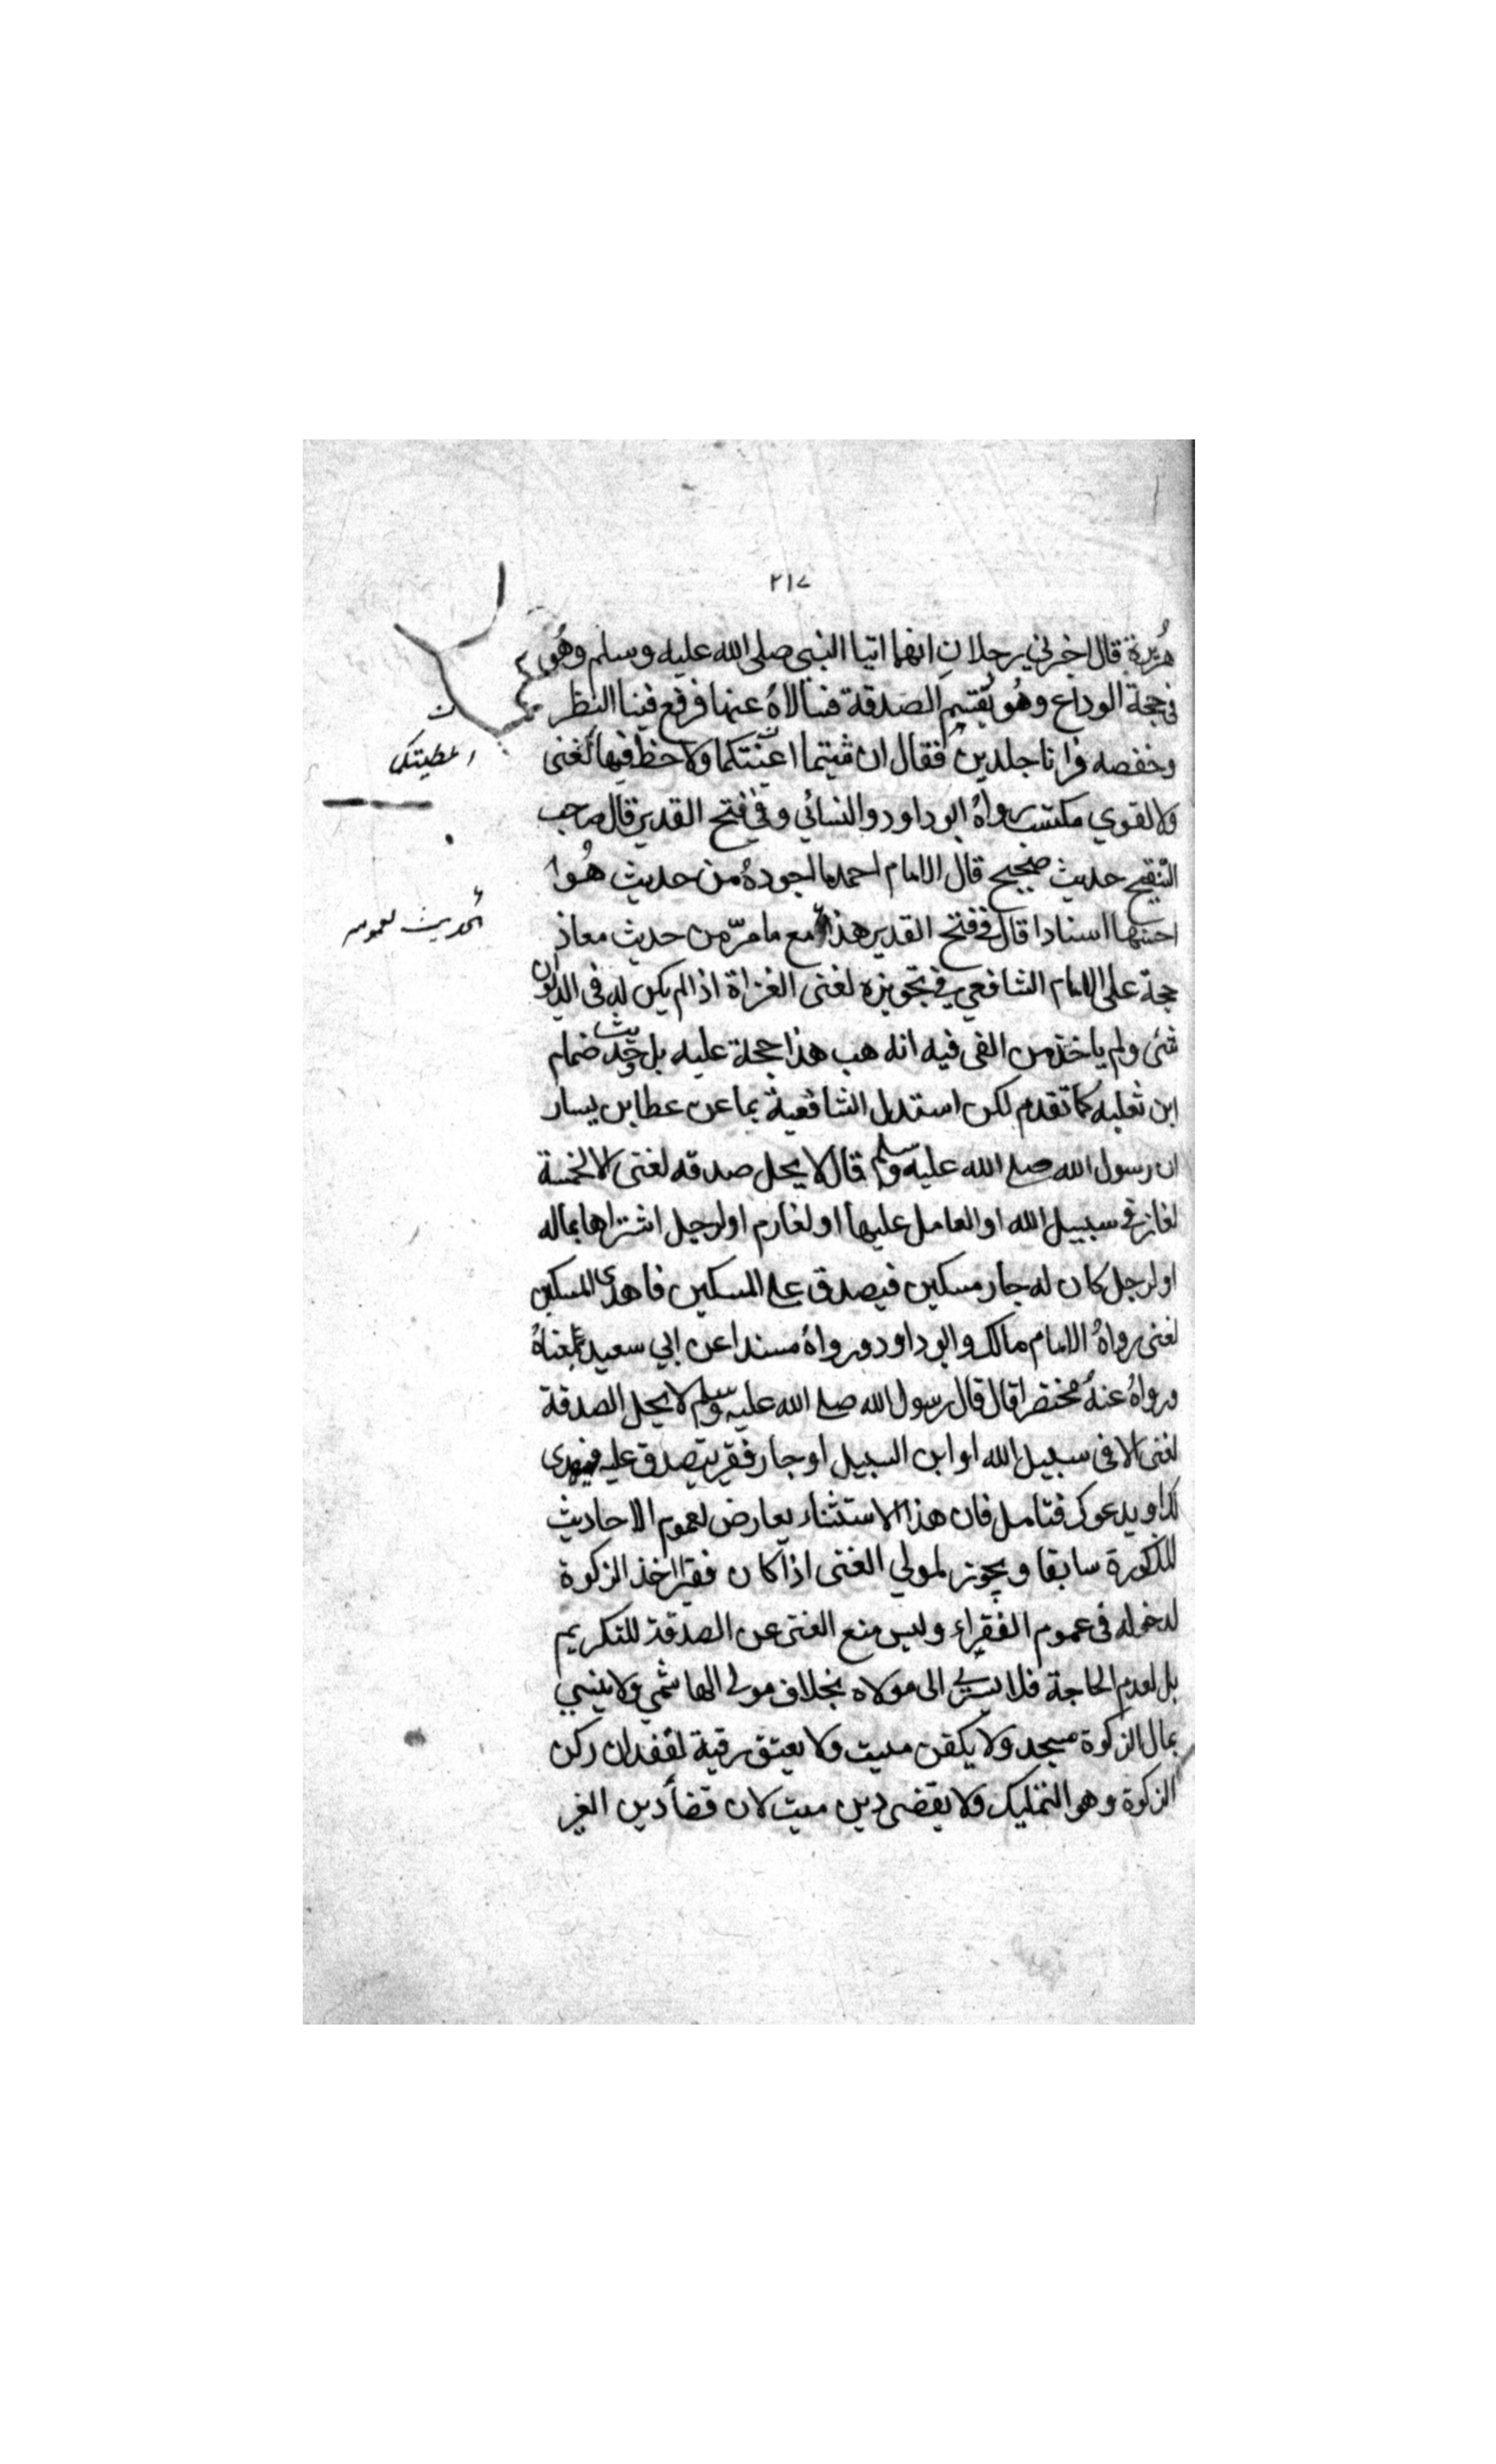 ٢١٧
هُريرة قال اخبرني رجلانِ انهما اتيا النبى صلى الله عليه وسلم وهُو
فى حجة الوداع وهُو يقتسم الصدقة فسالاهُ عنها فرفع فينا النظر
وخفضه فرانا جلدين فقال ان شيتما اعنتكما ولا حظ فيها لغنى
ولا لقوي مكتسب رواهُ ابو داود والنسائي وفي فتح القدير قال صاحب
التنقيح حديث صحيح قال الامام احمد ما اجودهُ من حديث هُوا
احسنها اسنادا قال فى فتح القدير هذا مع ما مرّ من حديث معاذ
حجة على الامام الشافعي في تجويزه لغنى الغزاة اذا لم يكن له فى الديوان
شئ ولم ياخذ من الفى فيه انه هب هذا حجة عليه بل حديث ضمام
ابن ثعلبه كما تقدم لكن استدل الشافعية بما عن عطا بن يسار
ان رسول الله صلى الله عليه وسلم قال لا يحل صدقه لغنى الا لخمسة
لغاز فى سبيل الله او العامل عليها او لغارم او لرجل اشتراها بماله
او لرجل كان له جار مسكين فيصدق على المسكين فاهدى المسكين
لغنى رواهُ الامام مالك وابو داود ورواهُ مسندا عن ابي سعيد بمعناهُ
ورواهُ عنهُ مختصرا قال قال رسول الله صلى الله عليه وسلم لا يحل الصدقة
لغنى الا فى سبيل الله او ابن السبيل او جار فقير يتصدق عليه فيهدى
لك او يدعوك فتامل فان هذا الاستثناء يعارض لعموم الاحاديث
المذكورة سابقا و يجوز لمولي الغنى اذا كان فقيرا اخذ الزكوة
لدخوله فى عموم الفقراء وليس منع الغنى عن الصدقة للتكريم
بل لعدم الحاجة فلا يسرى الى مولاه بخلاف مولى الهاشمي ولا يبنى
بمال الزكوة مسجد ولا يكفن ميت ولا يعتق رقبة لفقدان ركن
الزكوة وهو التمليك ولا يقضى دين ميت لان قضأ دين الغير
ن
اعطيتكما
الحديث لعمومه